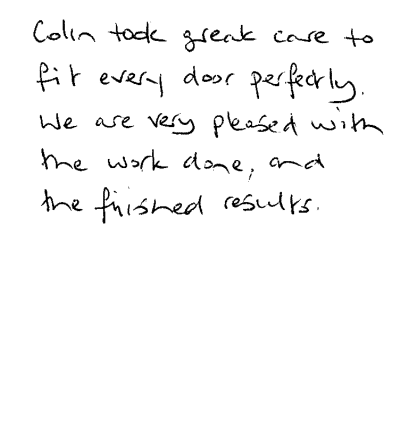 Colin took great care to
fit every door perfectly.
We are very pleased with
the work done, and
the finished results.